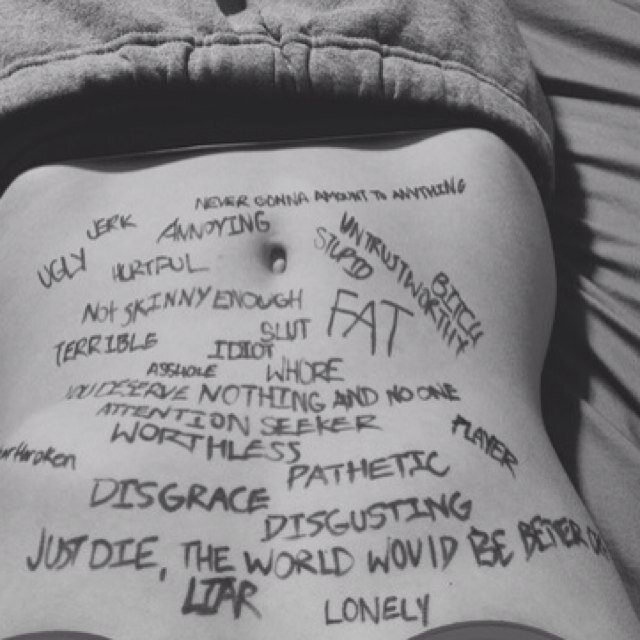 NEVER GONNA AMOUNT TO ANYTHING
JERK
ANNOYING
UNTRUSTWORTHY
STUPID
UGLY
HURTFUL
BITCH
NOT SKINNY ENOUGH
FAT
SLUT
TERRIBLE
IDIOT
ASSHOLE
WHORE
YOU DESERVE NOTHING AND NO ONE
ATTENTION SEEKER
WORTHLESS
PLAYER
PATHETIC
DISGRACE
DISGUSTING
JUST DIE, THE WORLD WOULD BE BETTER
LIAR
LONELY